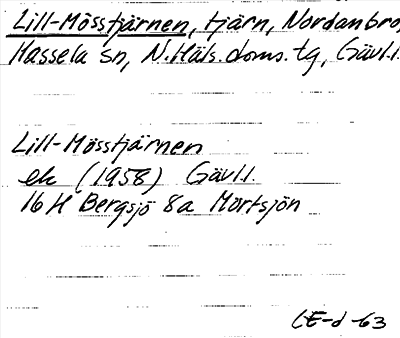 Lill-Mösstjärnen, tjärn, Nordanbro,
Hassela sn, N.Häls.doms.tg, Gävl.l.
Lill-Mösstjärnen
ek (1958) Gävl.l.
16 H Bergsjö 8a Mörtsjön
CE-d -63